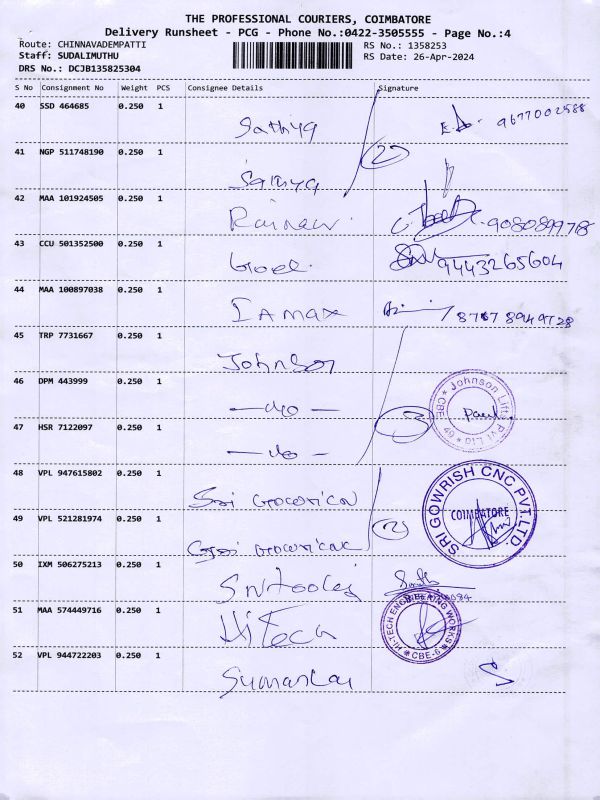 THE PROFESSIONAL COURIERS, COIMBATORE
Delivery Runsheet - PCG - Phone No.:0422-3505555 - Page No.:4
Route: CHINNAVADEMPATTI RS No.: 1358253
Staff: SUDALIMUTHU RS Date: 26-Apr-2024
DRS No.: DCJB135825304
S No Consignment No Weight PCS Consignee Details Signature
40 SSD 464685 0.250 1 Sathya 9677002588
41 NGP 511748190 0.250 1 Sathya 2
42 MAA 101924505 0.250 1 9080899718
43 CCU 501352500 0.250 1 9443265604
44 MAA 100897038 0.250 1 8767 8949728
45 TRP 7731667 0.250 1 Johnson
46 DPM 443999 0.250 1 — do — Johnson Lifts Pvt Ltd * 49 * CBE
47 HSR 7122097 0.250 1 — do —
48 VPL 947615802 0.250 1 Sri SRI GOWRISH CNC PVT.LTD. COIMBATORE
49 VPL 521281974 0.250 1 2
50 IXM 506275213 0.250 1
51 MAA 574449716 0.250 1 HiTech HI-TECH ENGINEERING WORKS * CBE-6 *
52 VPL 944722203 0.250 1